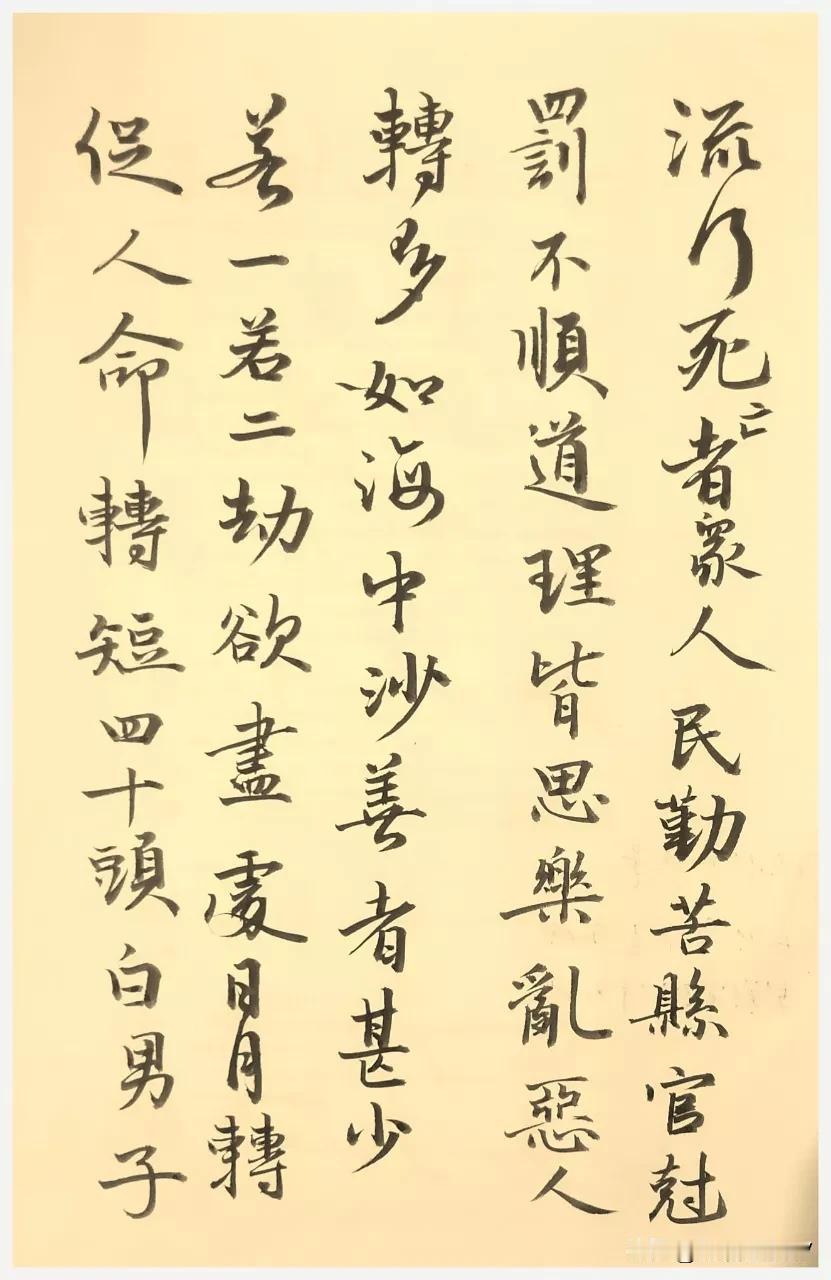 流行死亡者眾人民勤苦縣官尅
罰不順道理皆思樂亂惡人
轉多如海中沙善者甚少
若一若二劫欲盡處日月轉
促人命轉短四十頭白男子